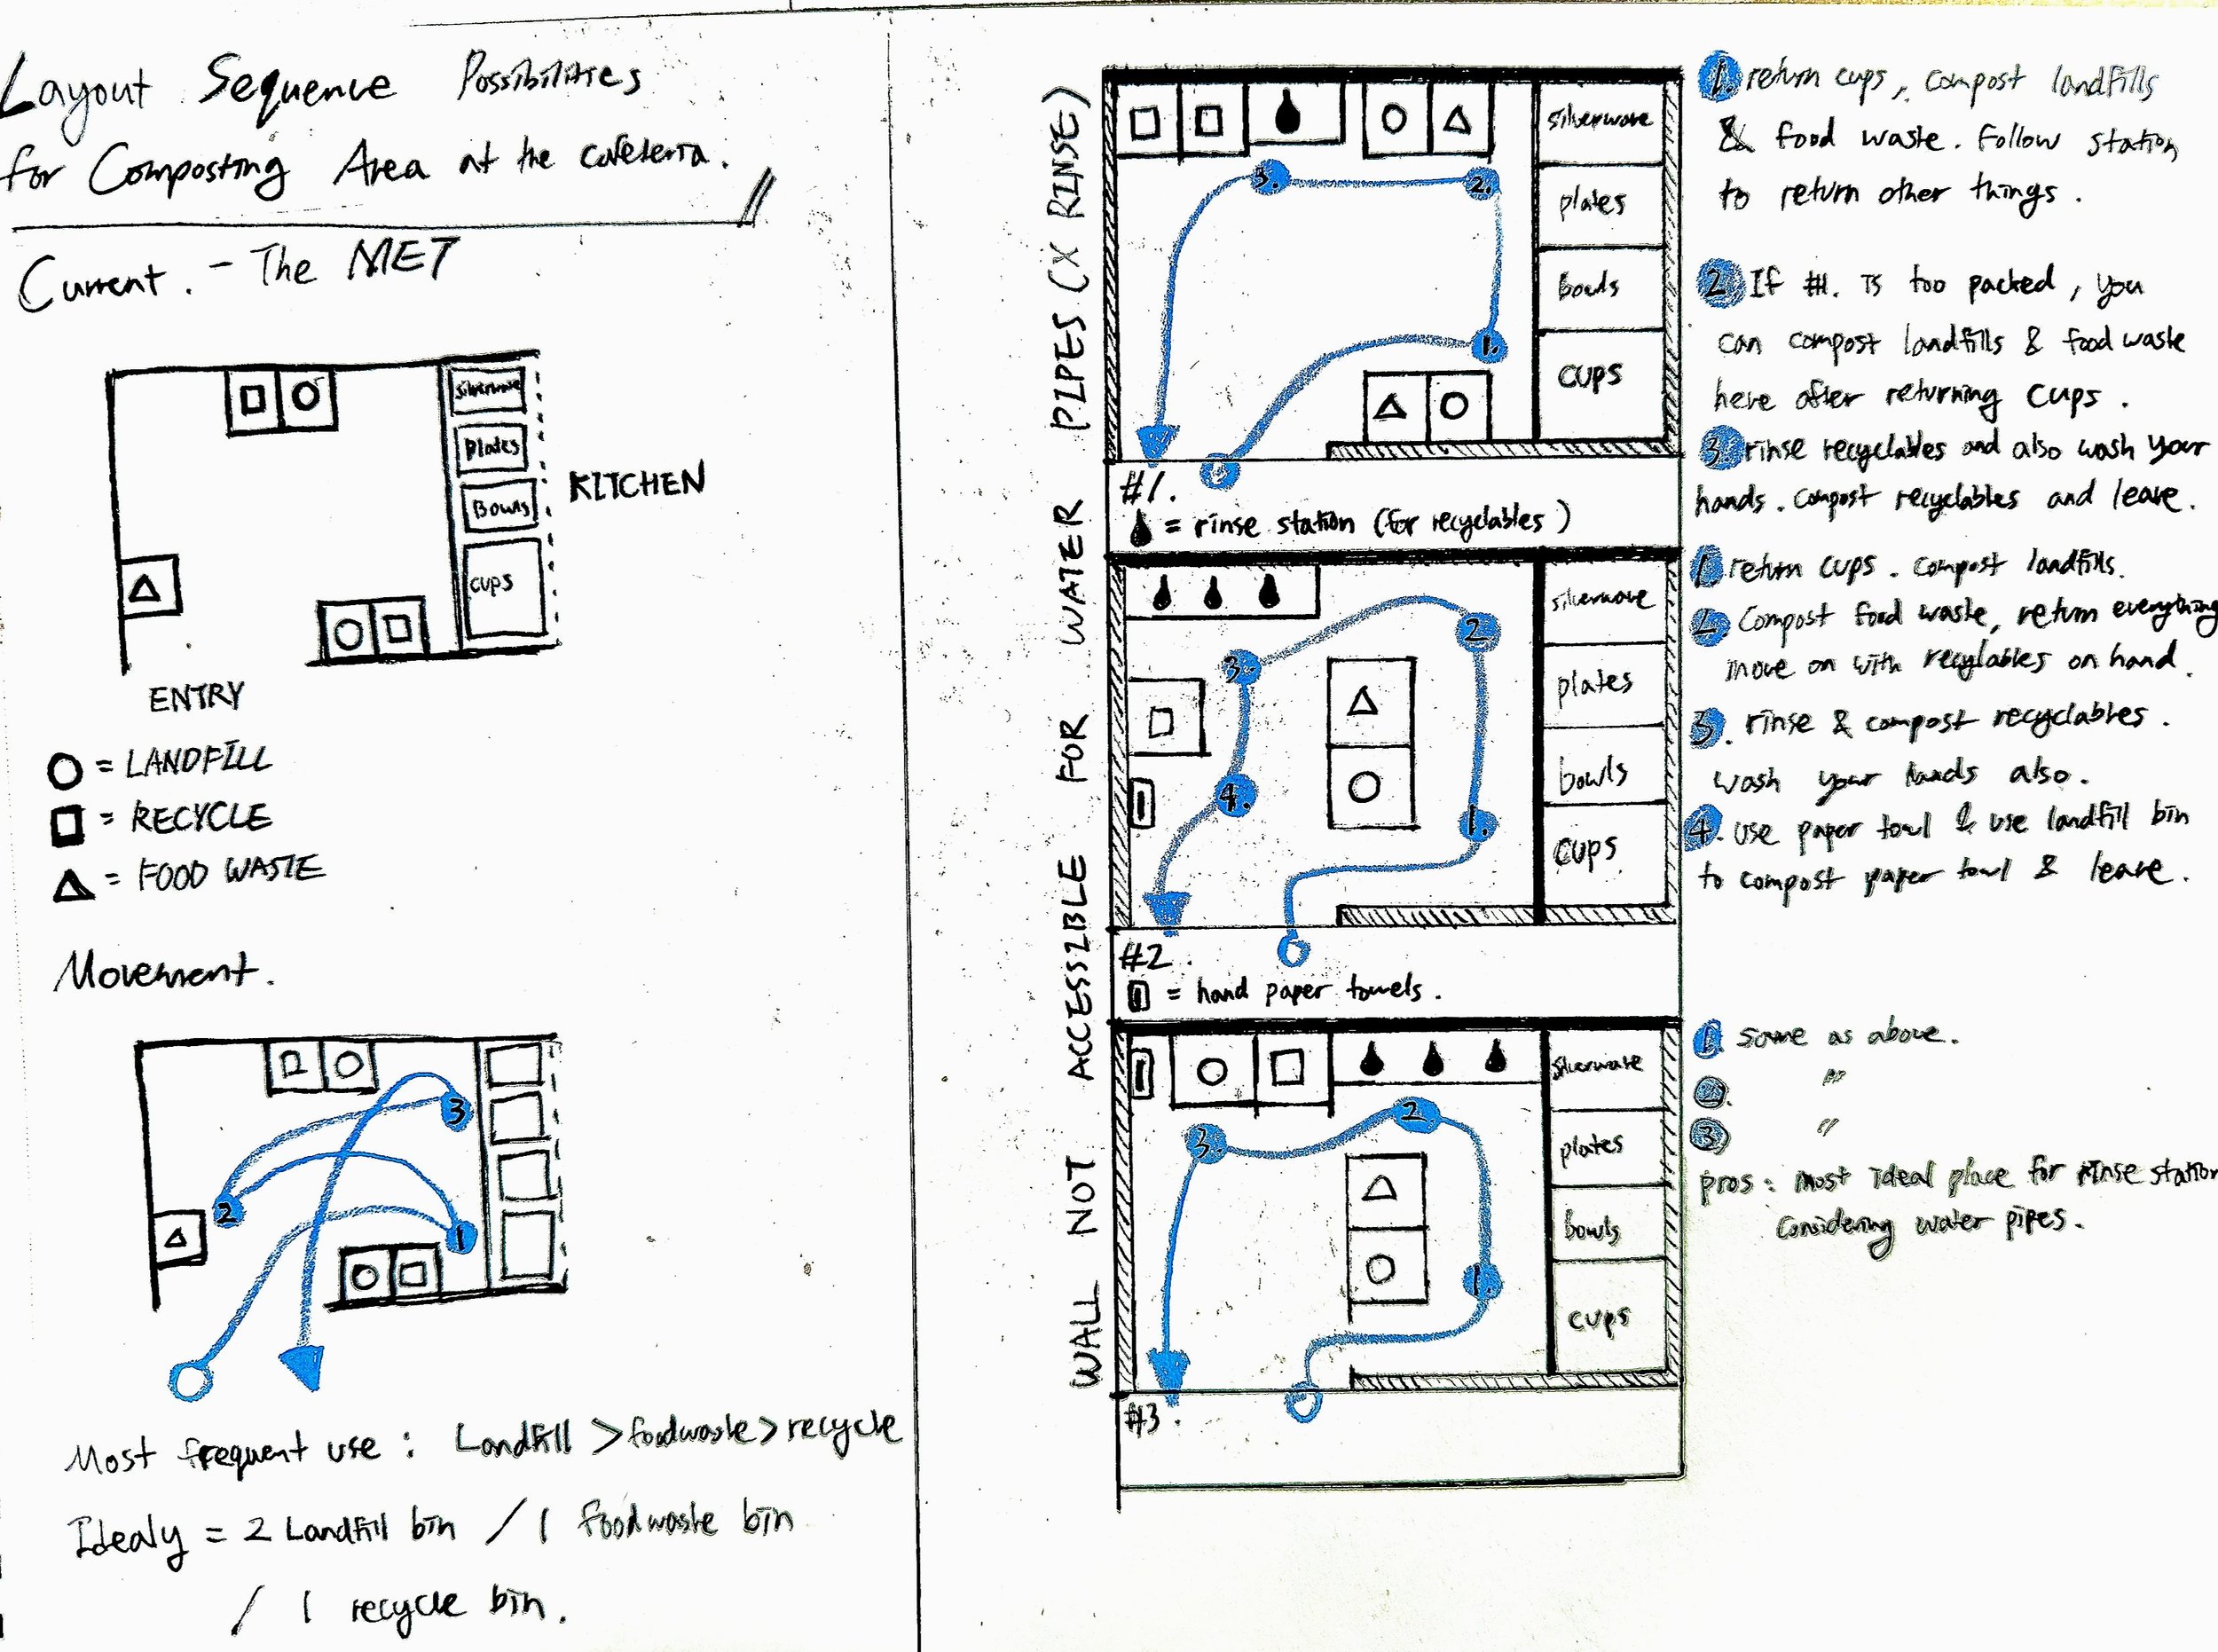 Layout Sequence Possibilities
for Composting Area at the cafeteria.
Current. - The MET
silverware
plates
Bowls
cups
KITCHEN
ENTRY
= LANDFILL
= RECYCLE
= FOOD WASTE
Movement.
3
2
1
Most frequent use : Landfill > foodwaste > recycle
Idealy = 2 Landfill bin / 1 foodwaste bin
/ 1 recycle bin.
WALL NOT ACCESSIBLE FOR WATER PIPES (X RINSE)
silverware
plates
Bowls
cups
3.
2.
1.
#1.
= rinse station (for recyclables)
silverware
plates
bowls
cups
2.
3.
4.
1.
#2.
= hand paper towels.
silverware
plates
bowls
cups
2.
3.
1.
#3.
1. return cups, compost landfills
& food waste. Follow station
to return other things.
2. If #1. is too packed, you
can compost landfills & food waste
here after returning cups.
3. rinse recyclables and also wash your
hands. compost recyclables and leave.
1. return cups. compost landfills.
2. Compost food waste, return everything
move on with recylables on hand.
3. rinse & compost recyclables.
wash your hands also.
4. use paper towl & use landfill bin
to compost paper towl & leave.
1. Same as above.
2. "
3. "
pros : most ideal place for rinse station
considering water pipes.